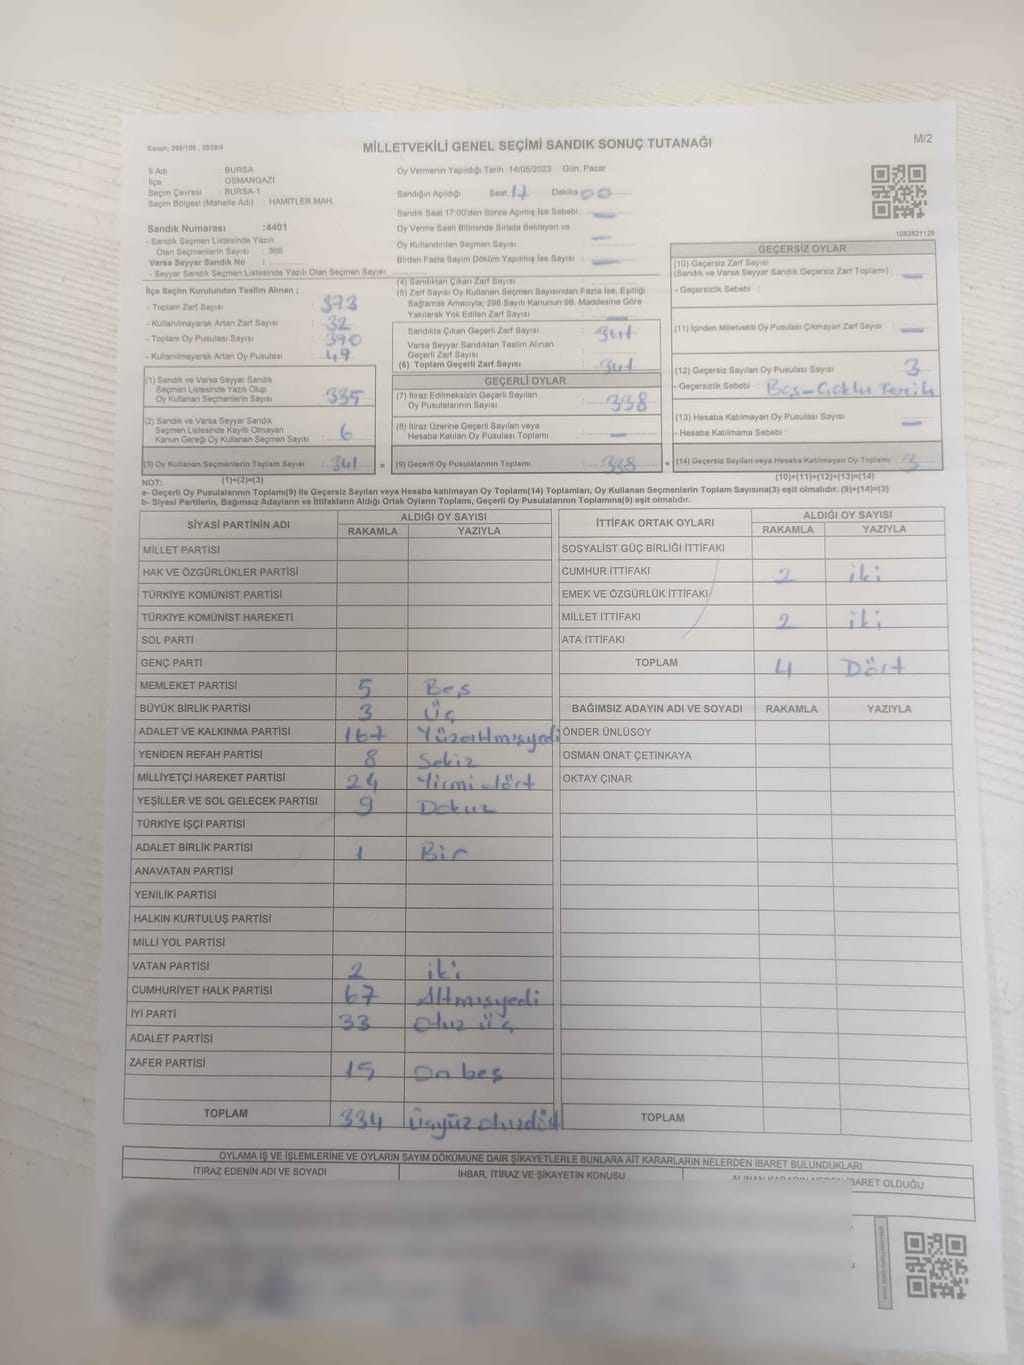 Kanun; 298/105 , 2839/4
MİLLETVEKİLİ GENEL SEÇİMİ SANDIK SONUÇ TUTANAĞI
M/2
İl Adı : BURSA
İlçe : OSMANGAZİ
Seçim Çevresi : BURSA-1
Seçim Bölgesi (Mahalle Adı) : HAMİTLER MAH.
Oy Vermenin Yapıldığı Tarih :14/05/2023 Gün: Pazar
Sandığın Açıldığı Saat 17 Dakika 00
Sandık Saat 17:00'den Sonra Açımış İse Sebebi : —
Oy Verme Saati Bitiminde Sırada Bekleyen ve
Oy Kullandırılan Seçmen Sayısı : —
Birden Fazla Sayım Döküm Yapılmış İse Sayısı : —
Sandık Numarası :4401
- Sandık Seçmen Listesinde Yazılı
Olan Seçmenlerin Sayısı : 366
Varsa Seyyar Sandık No :
- Seyyar Sandık Seçmen Listesinde Yazılı Olan Seçmen Sayısı:
İlçe Seçim Kurulundan Teslim Alınan ;
- Toplam Zarf Sayısı : 373
- Kullanılmayarak Artan Zarf Sayısı : 32
- Toplam Oy Pusulası Sayısı : 390
- Kullanılmayarak Artan Oy Pusulası : 49
(1) Sandık ve Varsa Seyyar Sandık
Seçmen Listesinde Yazılı Olup
Oy Kullanan Seçmenlerin Sayısı : 335
(2) Sandık ve Varsa Seyyar Sandık
Seçmen Listesinde Kayıtlı Olmayan
Kanun Gereği Oy Kullanan Seçmen Sayısı : 6
(3) Oy Kullanan Seçmenlerin Toplam Sayısı : 341
(1)+(2)=(3)
(4) Sandıktan Çıkan Zarf Sayısı :
(5) Zarf Sayısı Oy Kullanan Seçmen Sayısından Fazla İse, Eşitliği
Bağlamak Amacıyla; 298 Sayılı Kanunun 98. Maddesine Göre
Yakılarak Yok Edilen Zarf Sayısı : —
Sandıkta Çıkan Geçerli Zarf Sayısı : 341
Varsa Seyyar Sandıktan Teslim Alınan
Geçerli Zarf Sayısı :
(6) Toplam Geçerli Zarf Sayısı : 341
GEÇERLİ OYLAR
(7) İtiraz Edilmeksizin Geçerli Sayılan
Oy Pusulalarının Sayısı : 338
(8) İtiraz Üzerine Geçerli Sayılan veya
Hesaba Katılan Oy Pusulası Toplamı : —
= (9) Geçerli Oy Pusulalarının Toplamı : 338
1083821125
GEÇERSİZ OYLAR
(10) Geçersiz Zarf Sayısı
(Sandık ve Varsa Seyyar Sandık Geçersiz Zarf Toplamı) : —
- Geçersizlik Sebebi :
(11) İçinden Milletvekili Oy Pusulası Çıkmayan Zarf Sayısı : —
(12) Geçersiz Sayılan Oy Pusulası Sayısı : 3
- Geçersizlik Sebebi : Boş-Çoklu Tercih
(13) Hesaba Katılmayan Oy Pusulası Sayısı : —
- Hesaba Katılmama Sebebi :
+ (14) Geçersiz Sayılan veya Hesaba Katılmayan Oy Toplamı : 3
(10)+(11)+(12)+(13)=(14)
NOT:
a- Geçerli Oy Pusulalarının Toplamı(9) ile Geçersiz Sayılan veya Hesaba katılmayan Oy Toplamı(14) Toplamları, Oy Kullanan Seçmenlerin Toplam Sayısına(3) eşit olmalıdır. (9)+(14)=(3)
b- Siyasi Partilerin, Bağımsız Adayların ve İttifakların Aldığı Ortak Oyların Toplamı, Geçerli Oy Pusulalarının Toplamına(9) eşit olmalıdır.
SİYASİ PARTİNİN ADI ALDIĞI OY SAYISI
RAKAMLA YAZIYLA
MİLLET PARTİSİ
HAK VE ÖZGÜRLÜKLER PARTİSİ
TÜRKİYE KOMÜNİST PARTİSİ
TÜRKİYE KOMÜNİST HAREKETİ
SOL PARTİ
GENÇ PARTİ
MEMLEKET PARTİSİ 5 Beş
BÜYÜK BİRLİK PARTİSİ 3 Üç
ADALET VE KALKINMA PARTİSİ 167 Yüzaltmışyedi
YENİDEN REFAH PARTİSİ 8 Sekiz
MİLLİYETÇİ HAREKET PARTİSİ 24 Yirmi dört
YEŞİLLER VE SOL GELECEK PARTİSİ 9 Dokuz
TÜRKİYE İŞÇİ PARTİSİ
ADALET BİRLİK PARTİSİ 1 Bir
ANAVATAN PARTİSİ
YENİLİK PARTİSİ
HALKIN KURTULUŞ PARTİSİ
MİLLİ YOL PARTİSİ
VATAN PARTİSİ 2 iki
CUMHURİYET HALK PARTİSİ 67 Altmışyedi
İYİ PARTİ 33 Otuz üç
ADALET PARTİSİ
ZAFER PARTİSİ 15 On beş
TOPLAM 334 Üçyüzotuzdört
İTTİFAK ORTAK OYLARI ALDIĞI OY SAYISI
RAKAMLA YAZIYLA
SOSYALİST GÜÇ BİRLİĞİ İTTİFAKI
CUMHUR İTTİFAKI 2 iki
EMEK VE ÖZGÜRLÜK İTTİFAKI
MİLLET İTTİFAKI 2 iki
ATA İTTİFAKI
TOPLAM 4 Dört
BAĞIMSIZ ADAYIN ADI VE SOYADI RAKAMLA YAZIYLA
ÖNDER ÜNLÜSOY
OSMAN ONAT ÇETİNKAYA
OKTAY ÇINAR
TOPLAM
OYLAMA İŞ VE İŞLEMLERİNE VE OYLARIN SAYIM DÖKÜMÜNE DAİR ŞİKAYETLERLE BUNLARA AİT KARARLARIN NELERDEN İBARET BULUNDUKLARI
İTİRAZ EDENİN ADI VE SOYADI İHBAR, İTİRAZ VE ŞİKAYETİN KONUSU ALINAN KARARIN NEDEN İBARET OLDUĞU